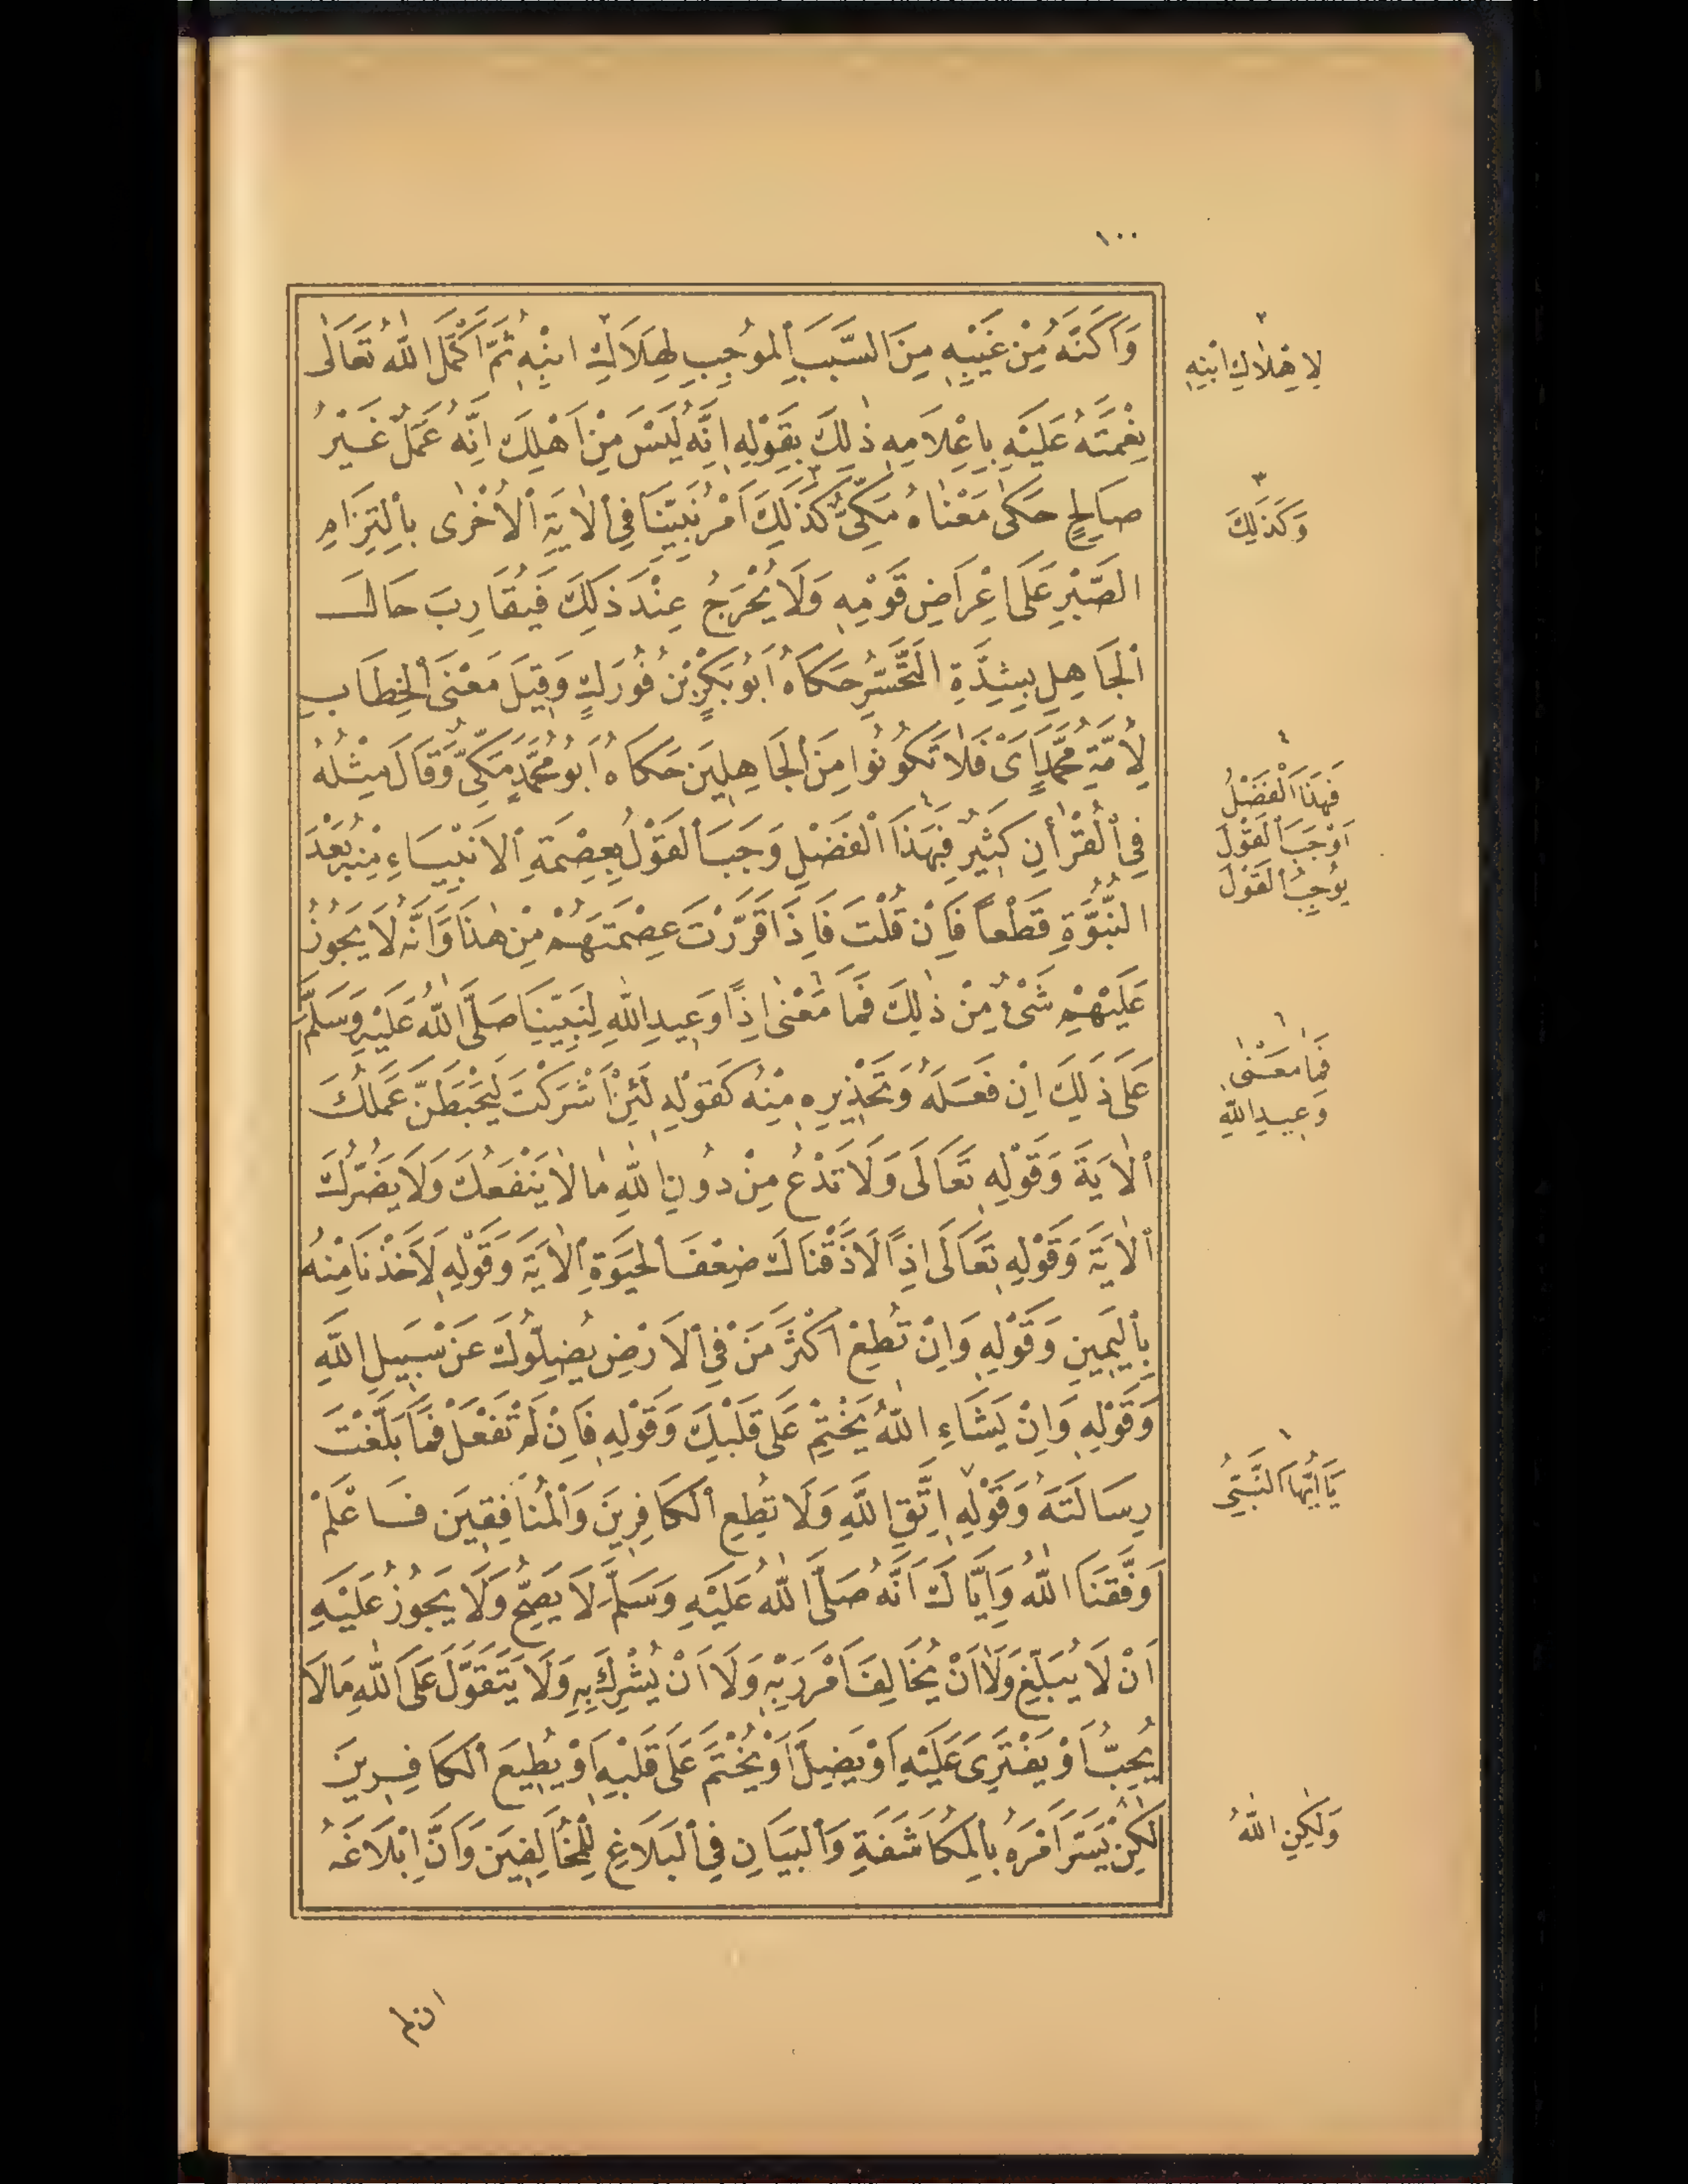 ١٠٠
وَاَكَنَّهُ مِنْ غَيْبِهٖ مِنَ السَّبَبِ الْمُوجِبِ لِهَلَاكِ ابْنِهٖ ثُمَّ اَكْمَلَ اللّٰهُ تَعَالٰى
نِعْمَتَهُ عَلَيْهِ بِاِعْلَامِهٖ ذٰلِكَ بِقَوْلِهٖ اِنَّهُ لَيْسَ مِنْ اَهْلِكَ اِنَّهُ عَمَلٌ غَيْرُ
صَالِحٍ حَكٰى مَعْنَاهُ مَكِّيٌّ كَذٰلِكَ اُمِرَ نَبِيُّنَا فِي الْاٰيَةِ الْاُخْرٰى بِالْتِزَامِ
الصَّبْرِ عَلَى اِعْرَاضِ قَوْمِهٖ وَلَا يُحْرَجُ عِنْدَ ذٰلِكَ فَيُقَارِبَ حَالَ
الْجَاهِلِ بِشِدَّةِ التَّحَسُّرِ حَكَاهُ اَبُو بَكْرِ بْنُ فُورَكٍ وَقِيلَ مَعْنَى الْخِطَابِ
لِاُمَّةِ مُحَمَّدٍ اَيْ فَلَا تَكُونُوا مِنَ الْجَاهِلِينَ حَكَاهُ اَبُو مُحَمَّدٍ مَكِّيٌّ وَقَالَ مِثْلُهُ
فِي الْقُرْاٰنِ كَثِيرٌ فَبِهٰذَا الْفَضْلِ وَجَبَ الْقَوْلُ بِعِصْمَةِ الْاَنْبِيَاءِ مِنْهُ بَعْدَ
النُّبُوَّةِ قَطْعًا فَاِنْ قُلْتَ فَاِذَا قَرَّرْتَ عِصْمَتَهُمْ مِنْ هٰذَا وَاَنَّهُ لَا يَجُوزُ
عَلَيْهِمْ شَيْءٌ مِنْ ذٰلِكَ فَمَا مَعْنٰى اِذًا وَعِيدِ اللّٰهِ لِنَبِيِّنَا صَلَّى اللّٰهُ عَلَيْهِ وَسَلَّمَ
عَلٰى ذٰلِكَ اِنْ فَعَلَهُ وَتَحْذِيرِهٖ مِنْهُ كَقَوْلِهٖ لَئِنْ اَشْرَكْتَ لَيَحْبَطَنَّ عَمَلُكَ
الْاٰيَةَ وَقَوْلِهٖ تَعَالَى وَلَا تَدْعُ مِنْ دُونِ اللّٰهِ مَا لَا يَنْفَعُكَ وَلَا يَضُرُّكَ
الْاٰيَةَ وَقَوْلِهٖ تَعَالَى اِذًا لَاَذَقْنَاكَ ضِعْفَ الْحَيٰوةِ الْاٰيَةَ وَقَوْلِهٖ لَاَخَذْنَا مِنْهُ
بِالْيَمِينِ وَقَوْلِهٖ وَاِنْ تُطِعْ اَكْثَرَ مَنْ فِي الْاَرْضِ يُضِلُّوكَ عَنْ سَبِيلِ اللّٰهِ
وَقَوْلِهٖ وَاِنْ يَشَاءِ اللّٰهُ يَخْتِمْ عَلٰى قَلْبِكَ وَقَوْلِهٖ فَاِنْ لَمْ تَفْعَلْ فَمَا بَلَّغْتَ
رِسَالَتَهُ وَقَوْلِهٖ اِتَّقِ اللّٰهَ وَلَا تُطِعِ الْكَافِرِينَ وَالْمُنَافِقِينَ فَاعْلَمْ
وَفَّقَنَا اللّٰهُ وَاِيَّاكَ اَنَّهُ صَلَّى اللّٰهُ عَلَيْهِ وَسَلَّمَ لَا يَصِحُّ وَلَا يَجُوزُ عَلَيْهِ
اَنْ لَا يُبَلِّغَ وَلَا اَنْ يُخَالِفَ اَمْرَ رَبِّهٖ وَلَا اَنْ يُشْرِكَ بِهٖ وَلَا يَتَقَوَّلَ عَلَى اللّٰهِ مَا لَا
يُحِبُّ اَوْ يَفْتَرِيَ عَلَيْهِ اَوْ يَضِلَّ اَوْ يُخْتَمَ عَلٰى قَلْبِهٖ اَوْ يُطِيعَ الْكَافِرِينَ
لٰكِنْ يَسَّرَ اَمْرَهُ بِالْمُكَاشَفَةِ وَالْبَيَانِ فِي الْبَلَاغِ لِلْمُخَالِفِينَ وَاَنَّ اِبْلَاغَهُ
٢
لِاِهْلَاكِ ابْنِهٖ
٣
وَكَذٰلِكَ
٤
فَهٰذَا الْفَضْلُ
اَوْجَبَ الْقَوْلَ
يُوجِبُ الْقَوْلَ
٦
فَمَا مَعْنٰى
وَعِيدِ اللّٰهِ
يَا اَيُّهَا النَّبِيُّ
وَلٰكِنِ اللّٰهُ